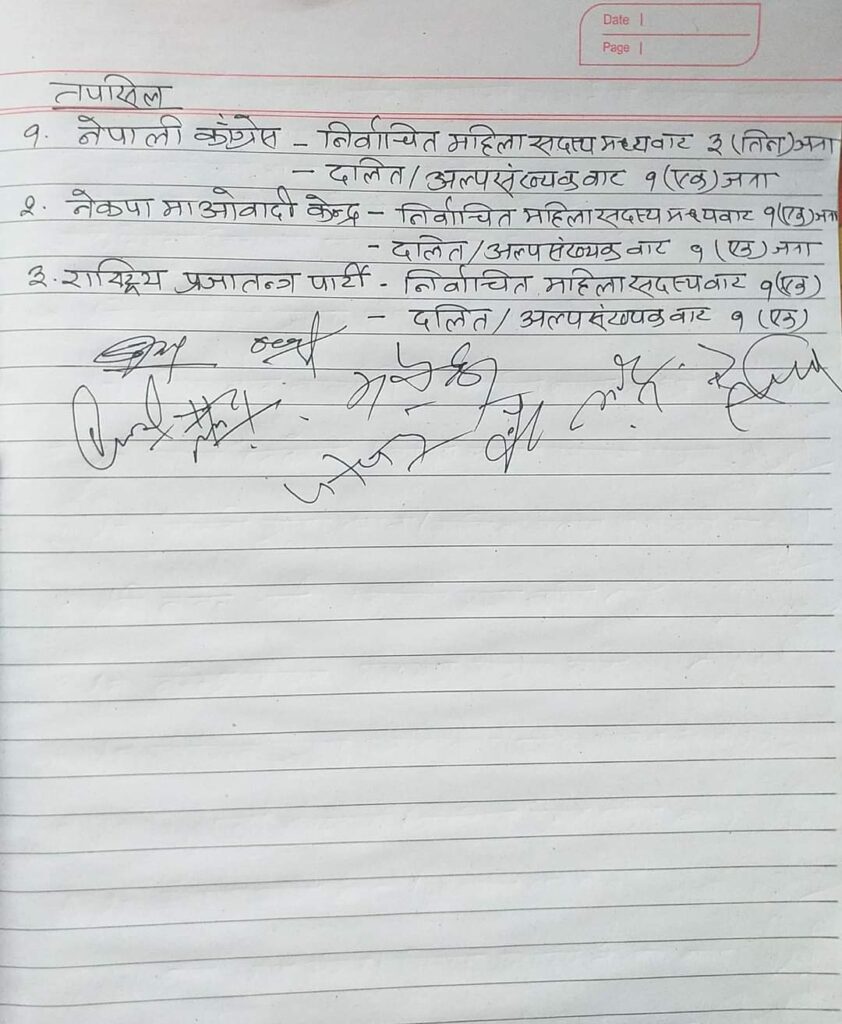 Date |
Page |
तपसिल
१. नेपाली काँग्रेस – निर्वाचित महिला सदस्य मध्यवाट ३ (तिन) जना
– दलित/अल्पसंख्यक वाट १ (एक) जना
२. नेकपा माओवादी केन्द्र – निर्वाचित महिला सदस्य मध्यवाट १ (एक) जना
– दलित/अल्पसंख्यक वाट १ (एक) जना
३. राष्ट्रिय प्रजातन्त्र पार्टी – निर्वाचित महिला सदस्यवाट १ (एक)
– दलित/अल्पसंख्यक वाट १ (एक)